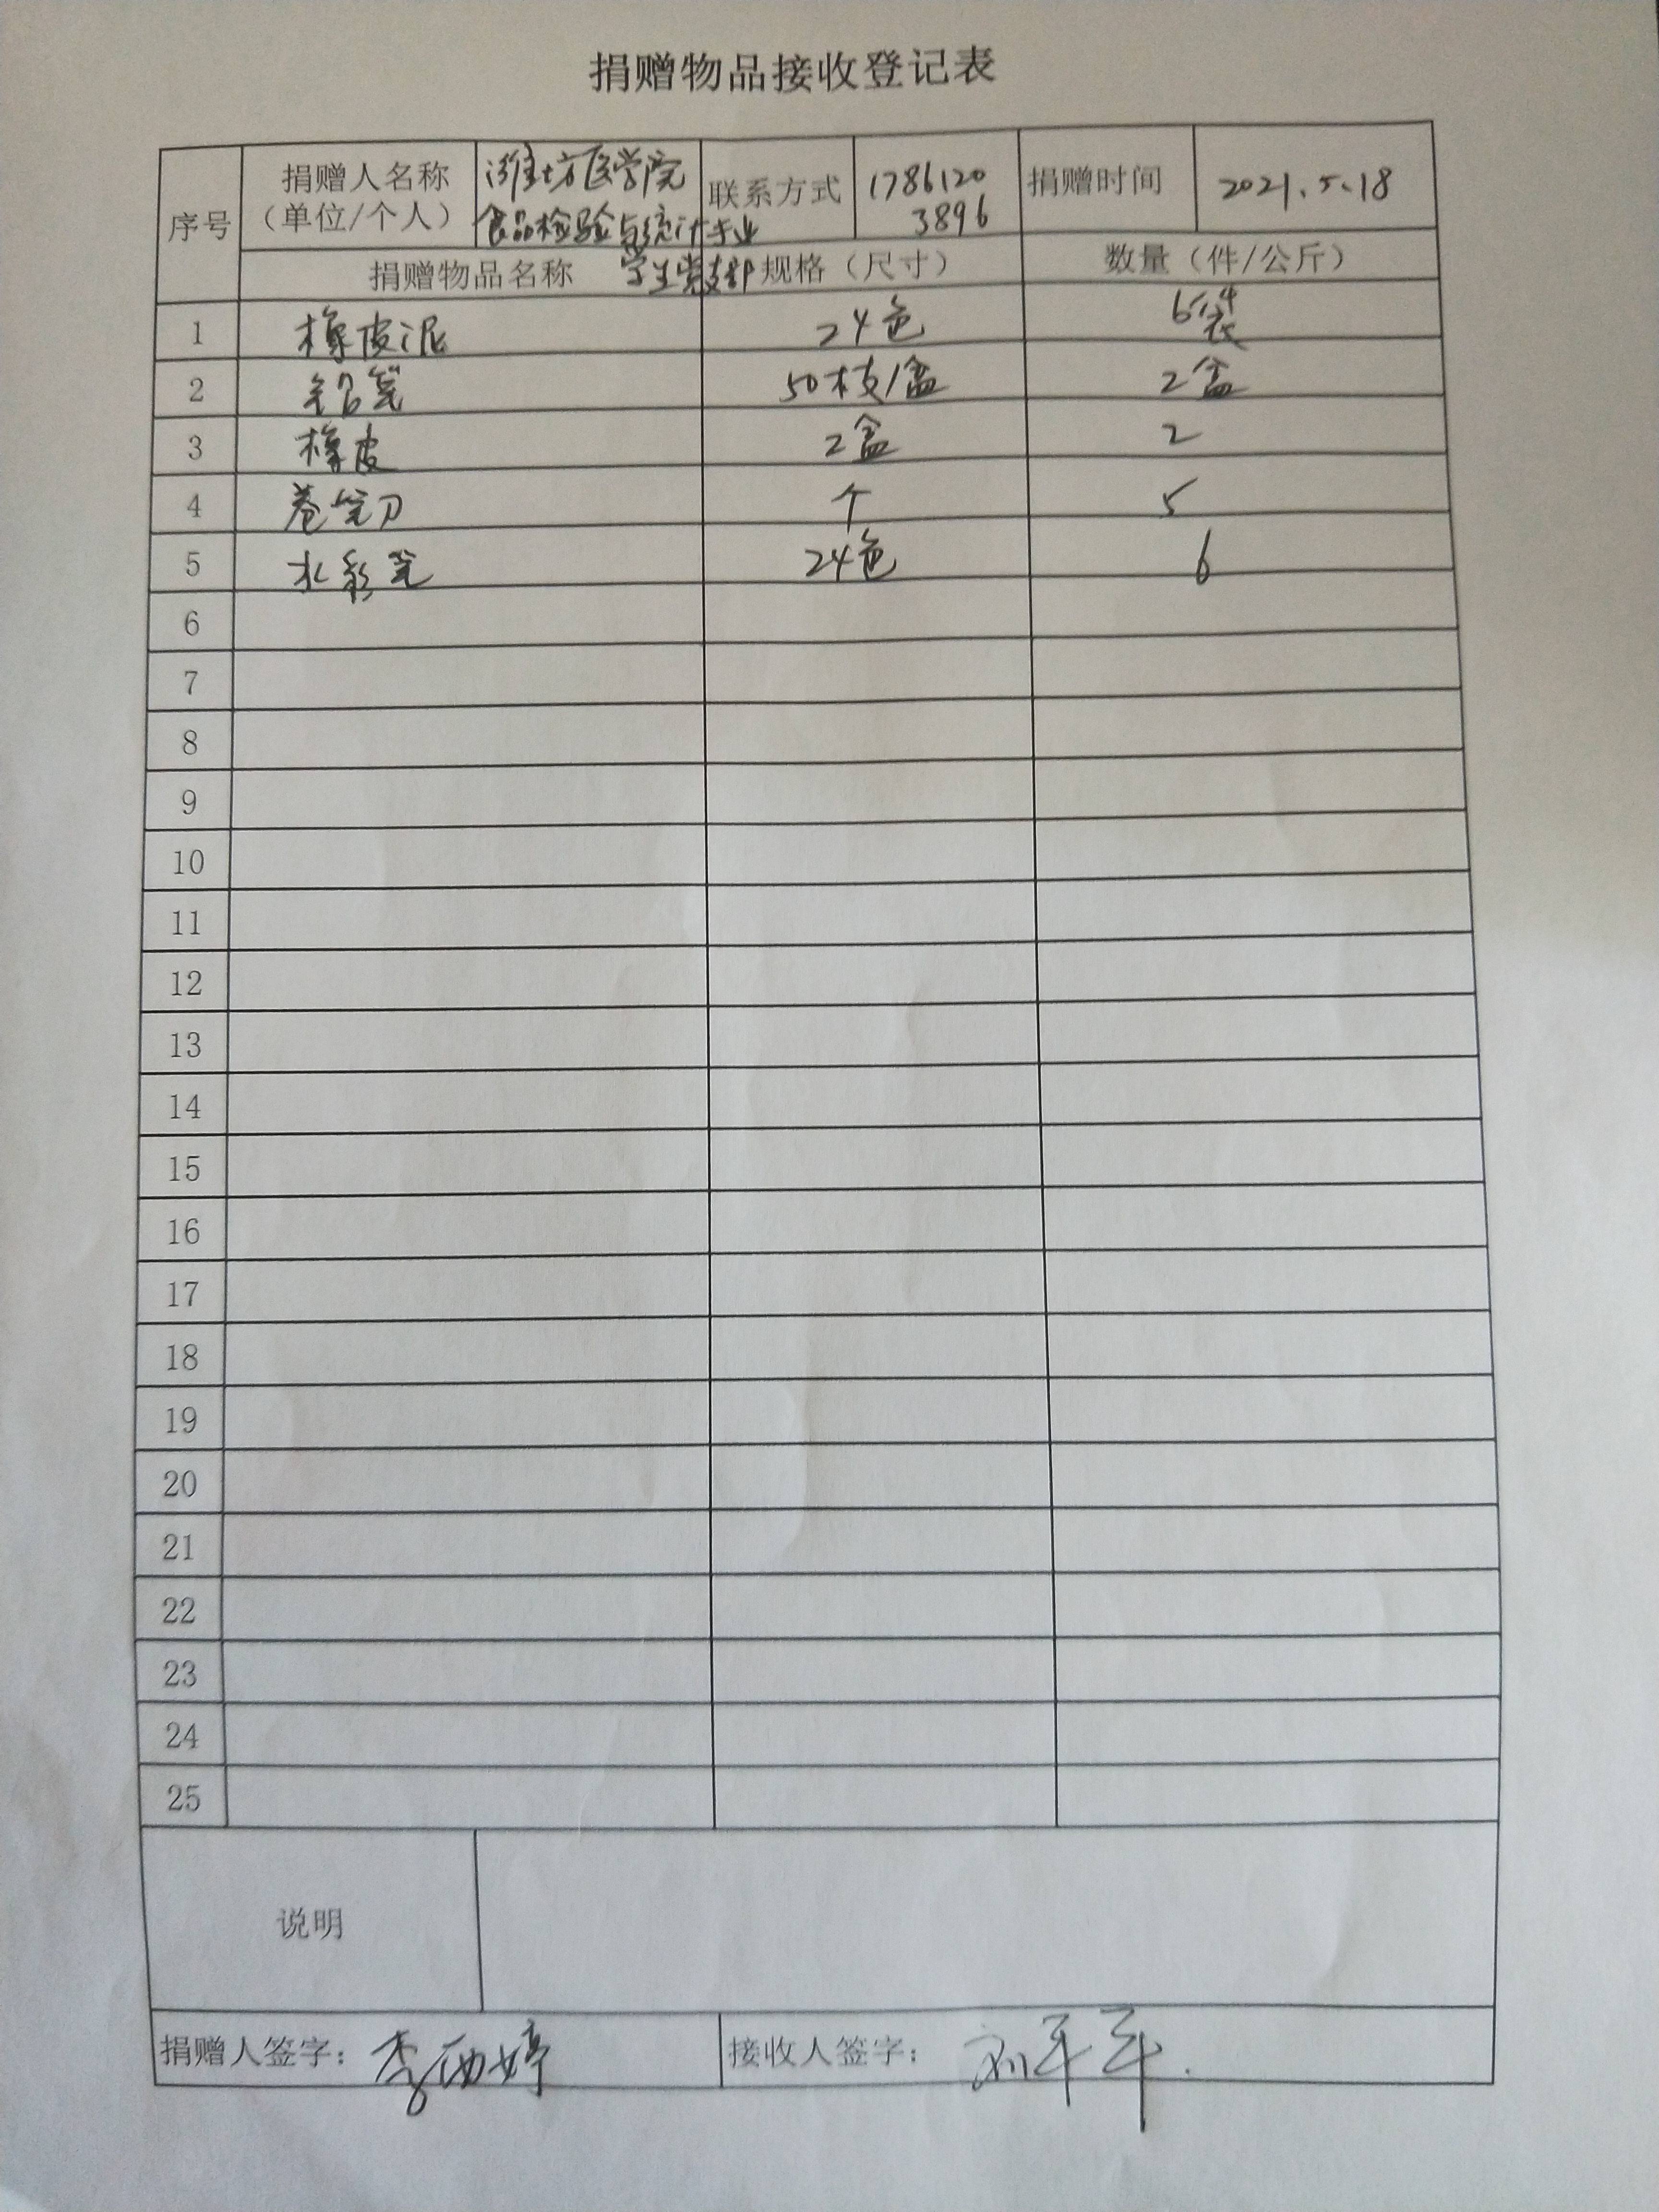 捐赠物品接收登记表
序号 捐赠人名称（单位/个人） 潍坊医学院食品检验与统计专业学生党支部 联系方式 17861203896 捐赠时间 2021.5.18
捐赠物品名称 规格（尺寸） 数量（件/公斤）
1 橡皮泥 24色 6袋
2 铅笔 50枝/盒 2盒
3 橡皮 2盒 2
4 卷笔刀 个 5
5 水彩笔 24色 6
6
7
8
9
10
11
12
13
14
15
16
17
18
19
20
21
22
23
24
25
说明
捐赠人签字： 李 婷 接收人签字： 刘军军.